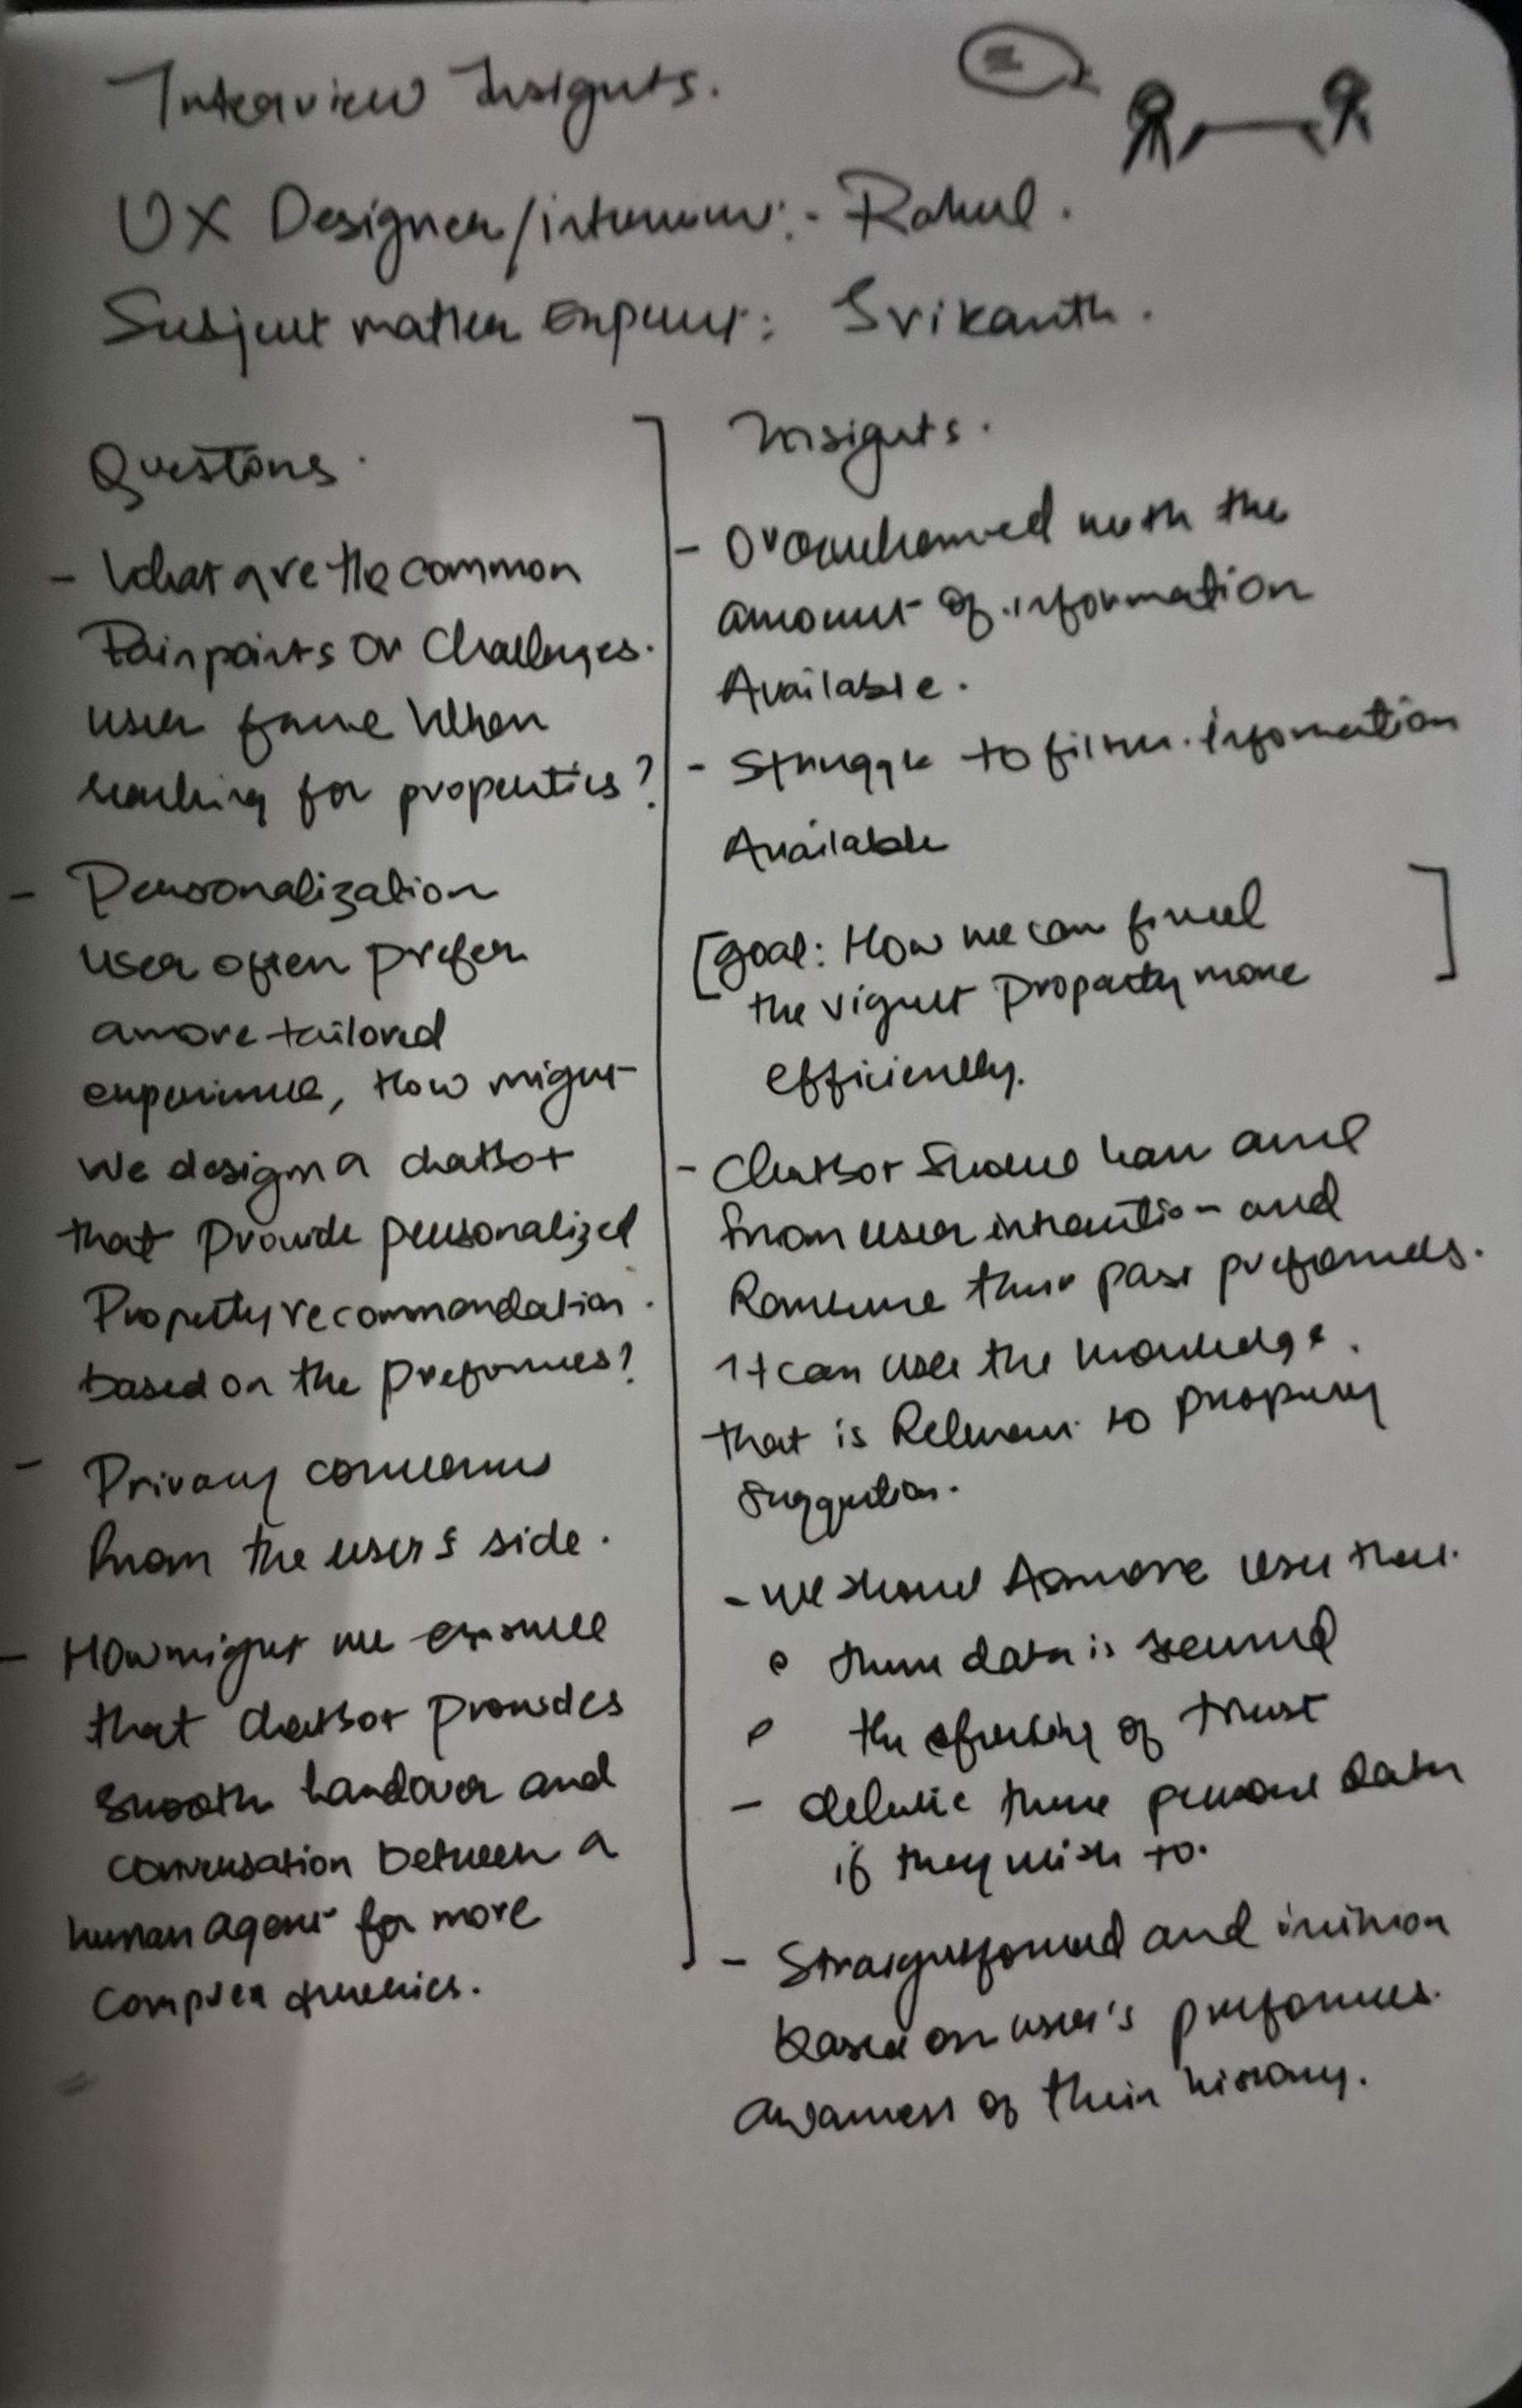 Interview Insights.
UX Designer/interviewer:- Rahul.
Subject matter Expert: Srikanth.
Questions.
- What are the common
Painpoints or Challenges.
user face When
searching for properties?
- Personalization
user often prefer
a more tailored
experience, How might
we design a chatbot
that provide personalized
Property recommendation.
based on the preferences?
- Privacy concerns
from the user's side.
- How might we ensure
that chatbot provides
smooth handover and
conversation between a
human agent for more
complex queries.
Insights.
- Overwhelmed with the
amount of information
Available.
- Struggle to filter information
Available
[Goal: How we can find ]
the right property more
efficiently.
- Chatbot should learn and
from user interaction and
their past preferences.
It can use the knowledge.
that is Relevant to property
suggestion.
- We should user that.
• there data is secured
• the of trust
- delete there personal data
if they wish to.
- Straightforward and
based on user's preferences.
awareness of their history.